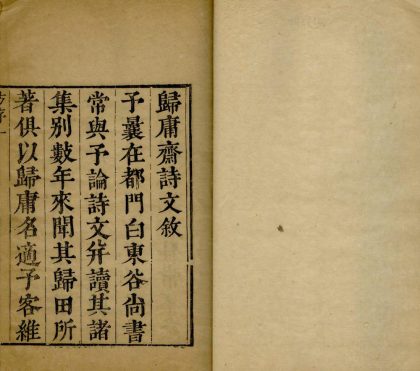 歸庸齋詩文敘
予曩在都門白東谷尚書
常與予論詩文幷讀其諸
集別數年來聞其歸田所
著俱以歸庸名適予客維